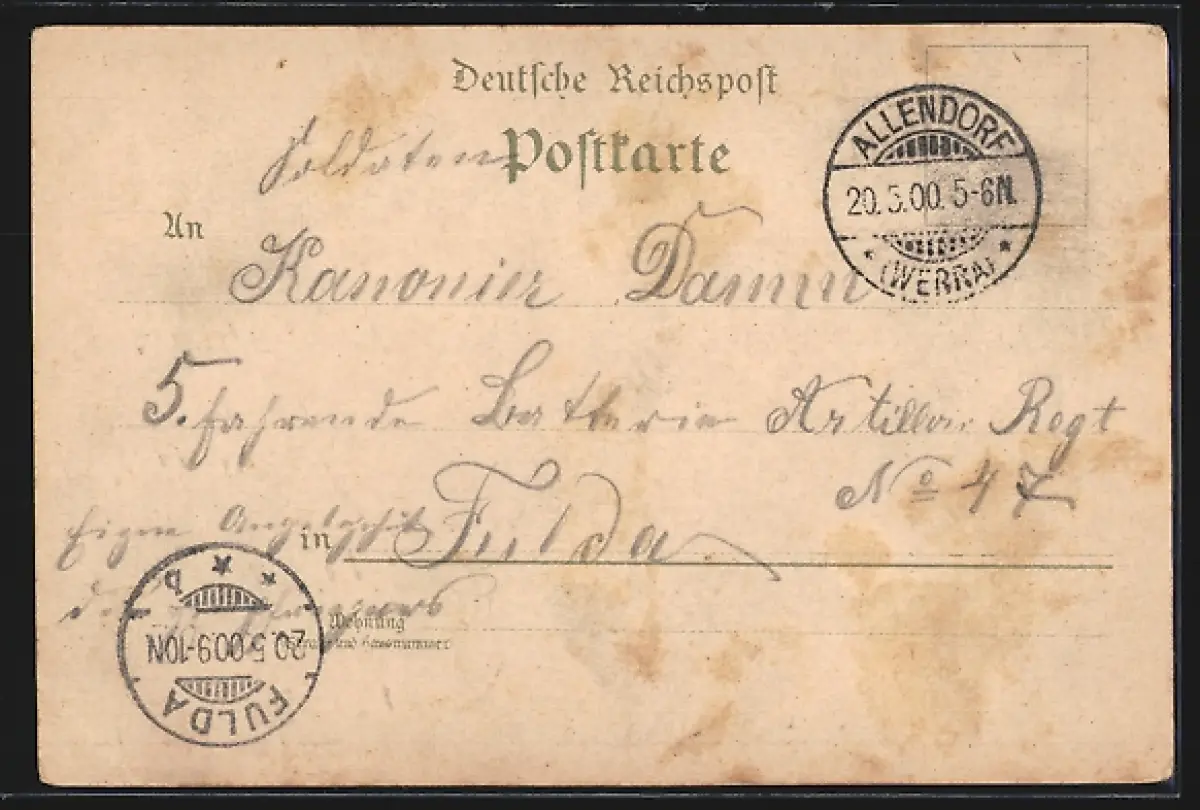 Deutsche Reichspost
Soldaten Postkarte
ALLENDORF
20.5.00. 5-6N.
* (WERRA) *
An
Kanonier Damm
5. fahrende Batterie Artillar. Regt
No 47
Eigen Angelegenh
in Fulda
des
Wohnung
(Straße und Hausnummer)
FULDA
20.5.00 9-10N
* * b